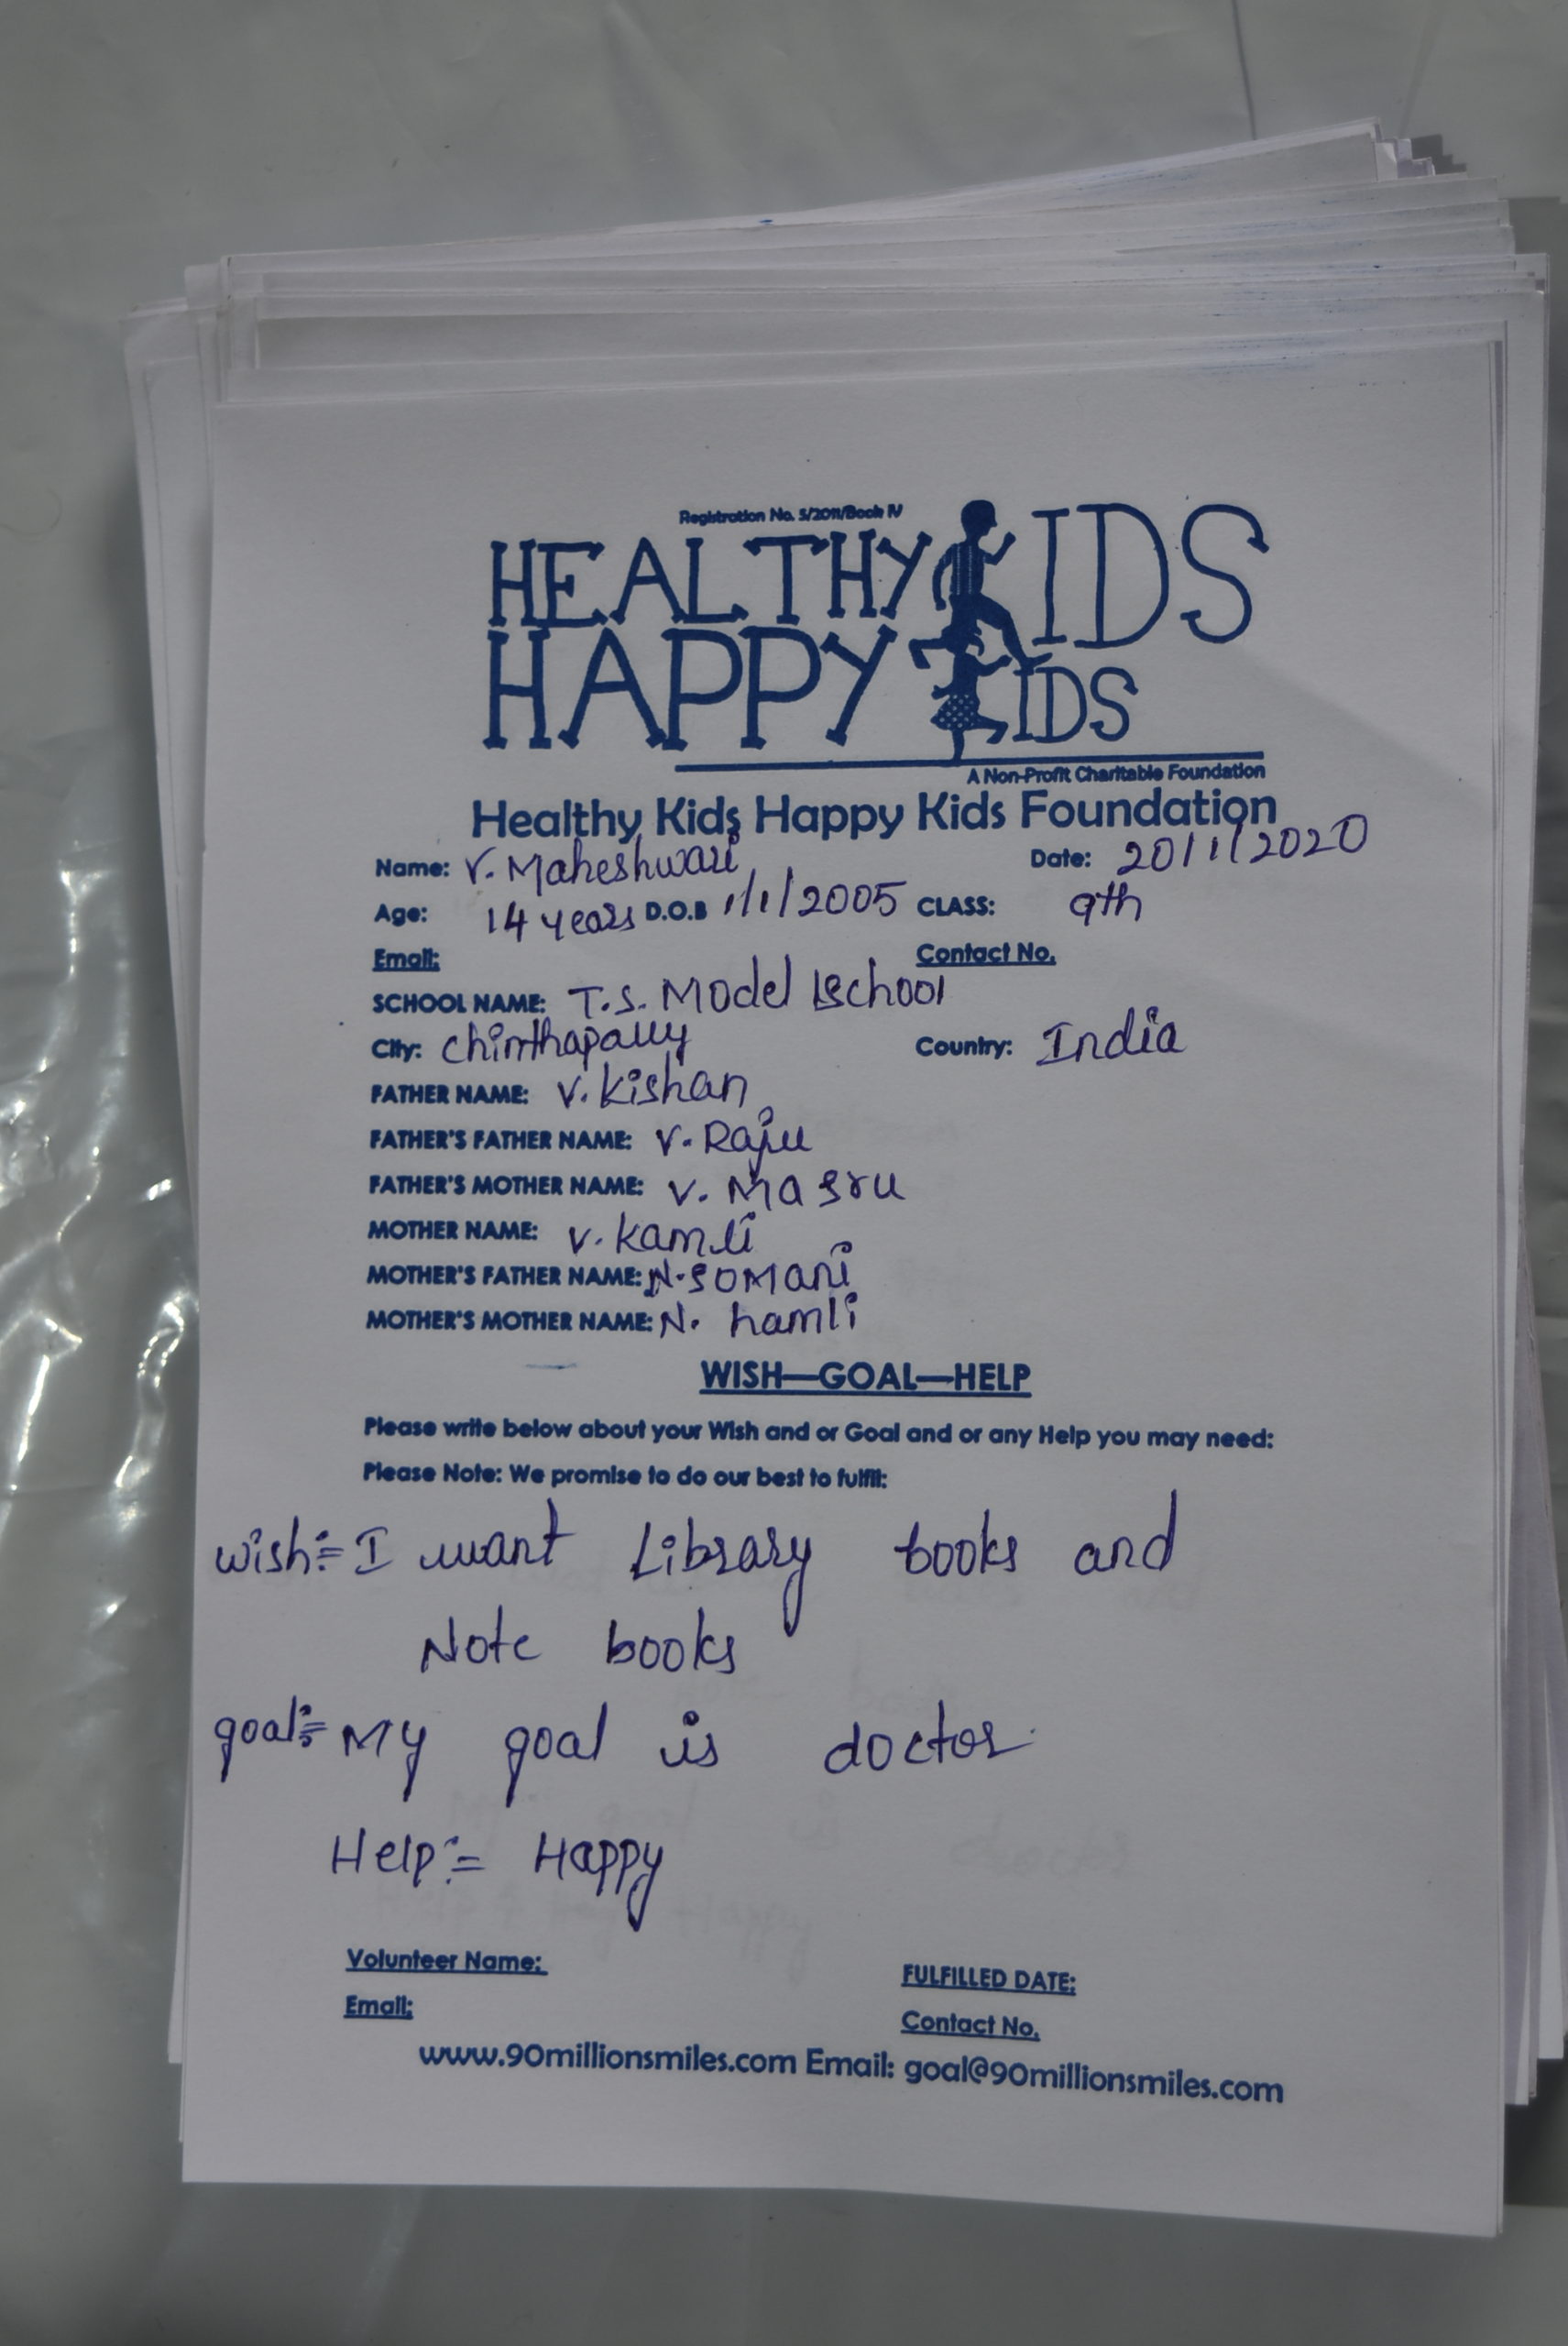 Registration No. 5/2011/Book IV
HEALTHY KIDS
HAPPY KIDS
A Non-Profit Charitable Foundation
Healthy Kids Happy Kids Foundation
Name: V. Maheshwari Date: 20/1/2020
Age: 14 years D.O.B 1/1/2005 CLASS: 9th
Email: Contact No.
SCHOOL NAME: T.S. Model school
City: chinthapally Country: India
FATHER NAME: V. Kishan
FATHER'S FATHER NAME: V. Raju
FATHER'S MOTHER NAME: V. Masru
MOTHER NAME: V. kamli
MOTHER'S FATHER NAME: N. somani
MOTHER'S MOTHER NAME: N. hamli
WISH—GOAL—HELP
Please write below about your Wish and or Goal and or any Help you may need:
Please Note: We promise to do our best to fulfil:
wish:= I want Library books and
Note books
goal:= My goal is doctor
Help:= Happy
Volunteer Name: FULFILLED DATE:
Email: Contact No.
www.90millionsmiles.com Email: goal@90millionsmiles.com